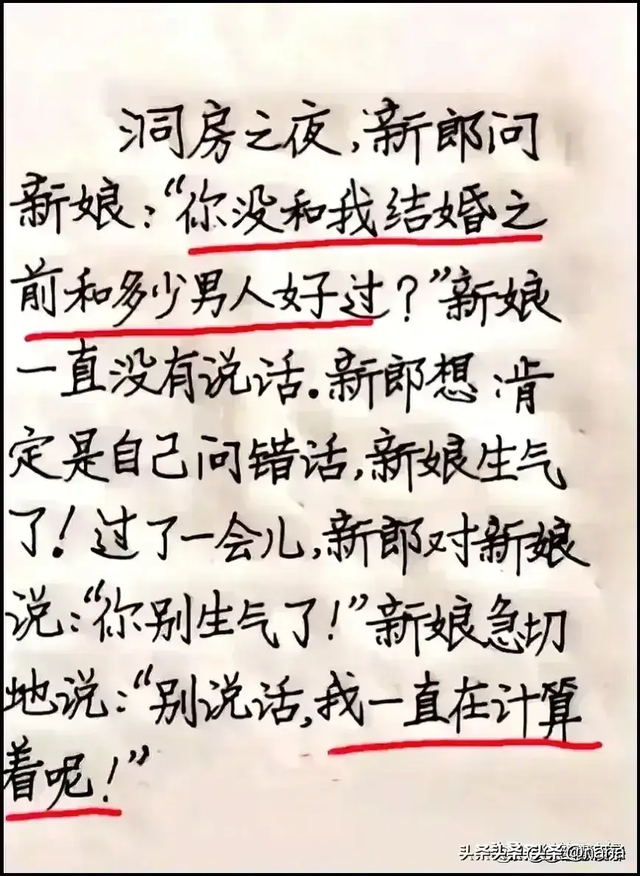 洞房之夜,新郎问
新娘:“你没和我结婚之
前和多少男人好过?”新娘
一直没有说话.新郎想:肯
定是自己问错话,新娘生气
了!过了一会儿,新郎对新娘
说:“你别生气了!”新娘急切
地说:“别说话,我一直在计算
着呢!”